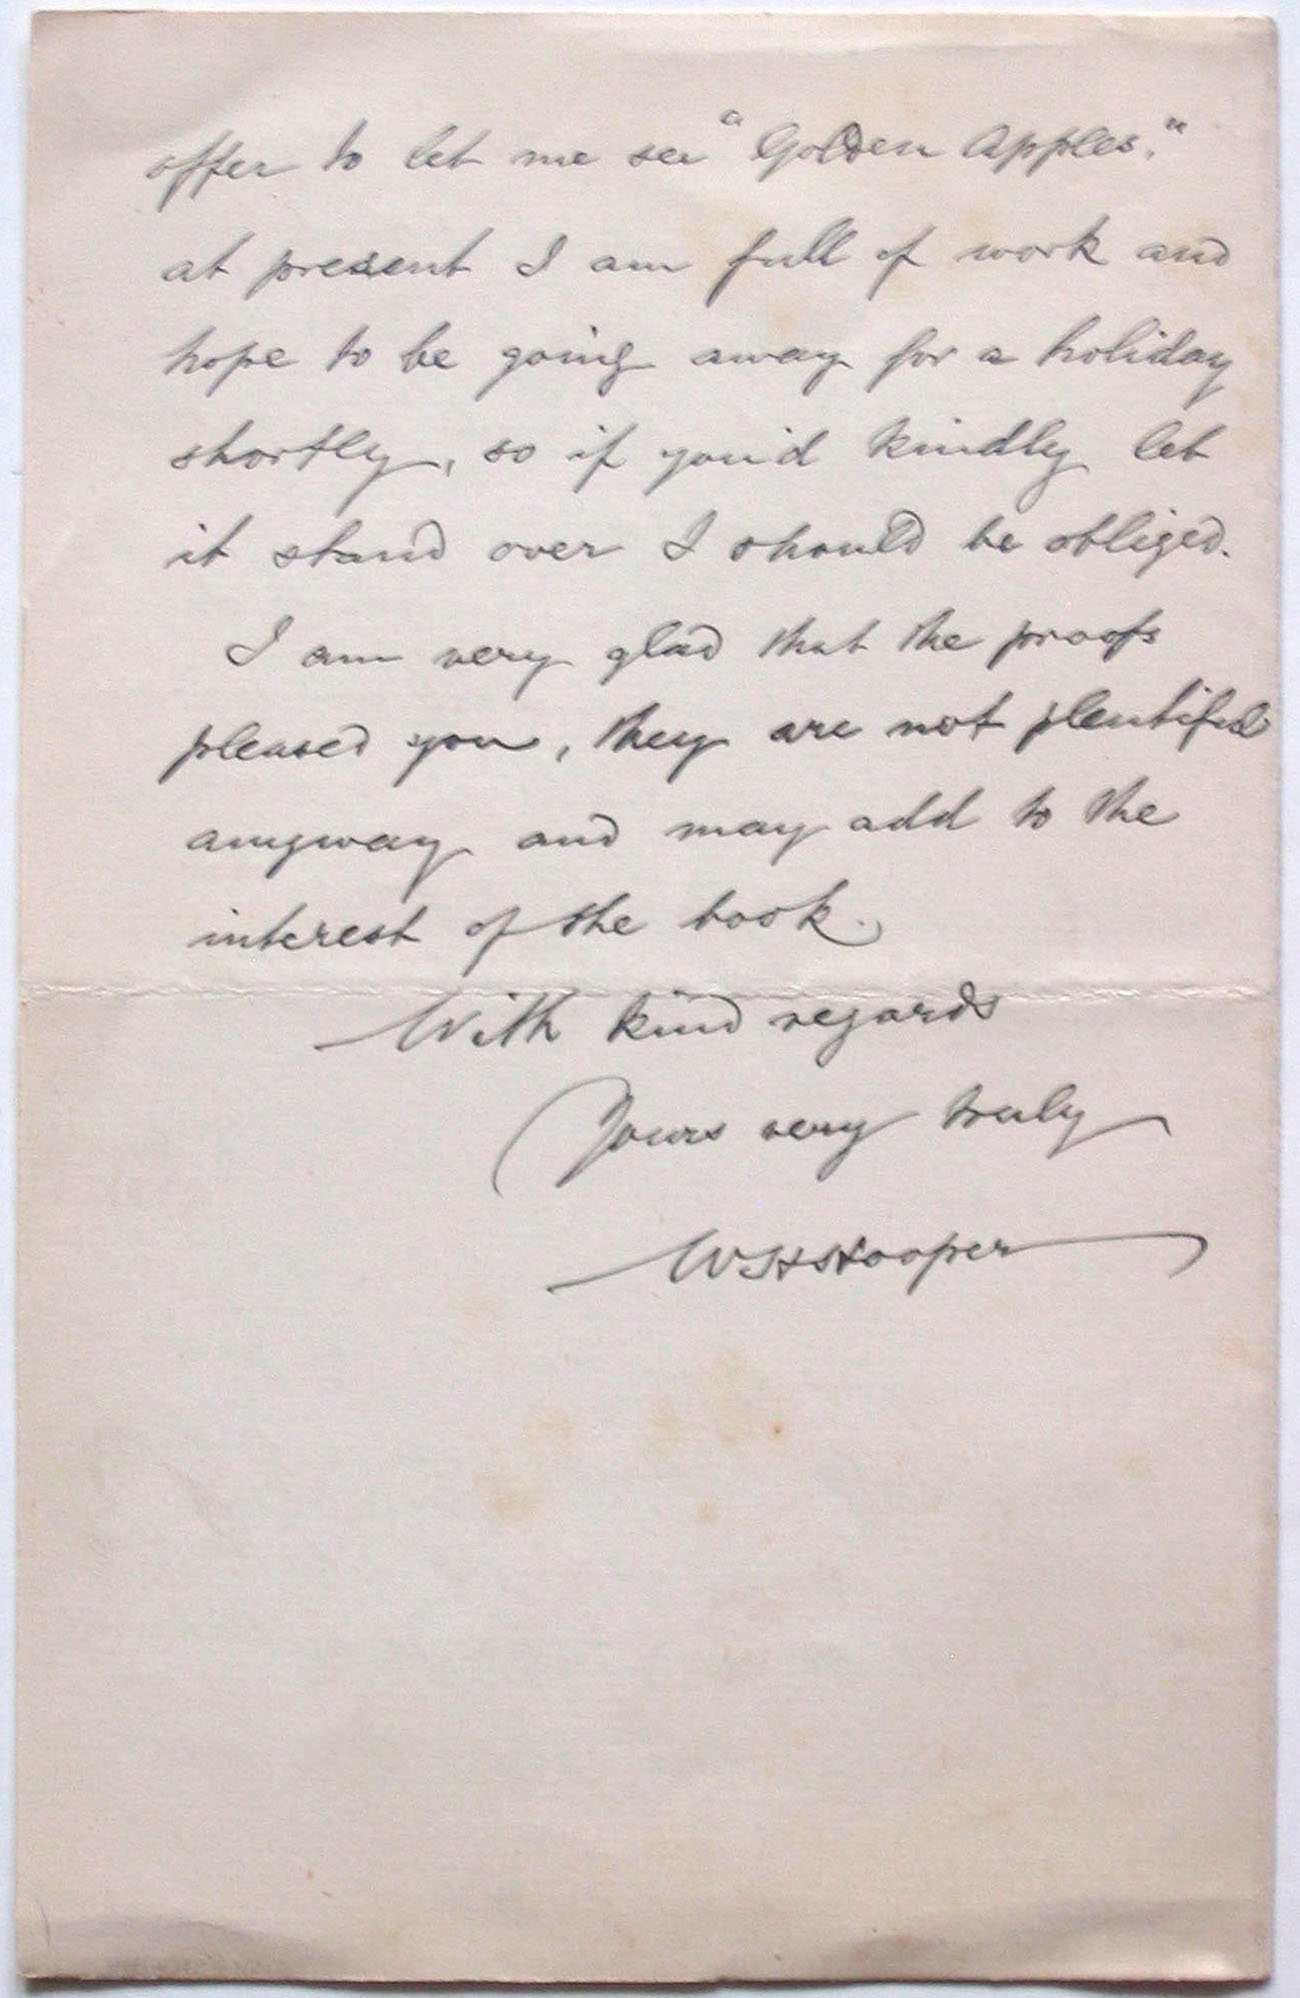 offer to let me see "Golden Apples."
at present I am full of work and
hope to be going away for a holiday
shortly, so if you'd kindly let
it stand over I should be obliged.
I am very glad that the proofs
pleased you, they are not plentiful
anyway and may add to the
interest of the book.
With kind regards
Yours very truly
W H Hooper